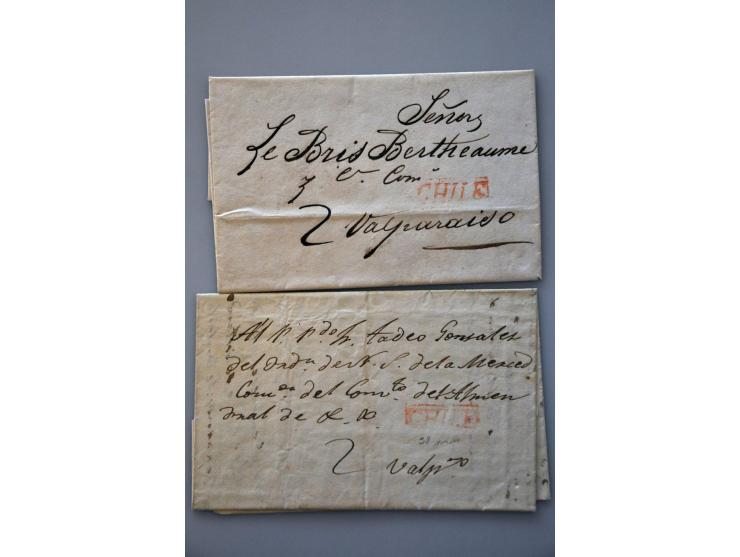 Señor
Le Bris Bertheaume
y Ca. Com.
CHILE
2 Valparaiso
Al P. Tadeo Gonsales
del Ordn. de N. S. de la Merced
Com.or del Com.to del Almen
dral de &. &.
CHILE
2 Valp.so